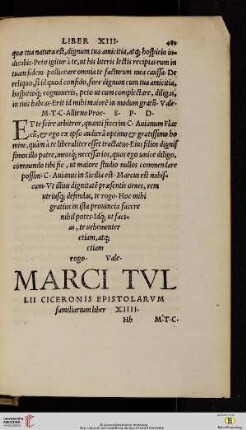 LIBER XIII·
quæ tua natura est, dignum tua amicitia, atq; hospitio iu
dicabis· Peto igitur à te, ut his literis lectis recipias eum in
tuam fidem· polliceare omnia te facturum mea caussa· De
reliquo, si id quod confido, fore dignum eum tua amicitia,
hospitioq; cognoueris, peto ut eum complectare, diligas,
in tuis habeas· Erit id mihi maiorē in modum gratū· Vale·
M·T·C·Allieno Proc· S· P· D·
ET te scire arbitror, quanti fecerim C· Auianum Flac
cū, & ego ex ipso audierā optimo & gratissimo ho
mine, quàm à te liberaliter esset tractatus· Eius filios dignis
simos illo patre, meosq; necessarios, quos ego unice diligo,
commendo tibi sic, ut maiore studio nullos commendare
possim· C· Auianius in Sicilia est· Marcus est nobis
cum· Vt illius dignitatē præsentis ornes, rem
utriusq; defendas, te rogo· Hoc mihi
gratius in ista prouincia facere
nihil potes· Idq; ut faci
as, te uehementer
etiam, atq;
etiam
rogo· Vale·
MARCI TVL
LII CICERONIS EPISTOLARVM
familiarium liber XIIII·
Hh M·T·C·